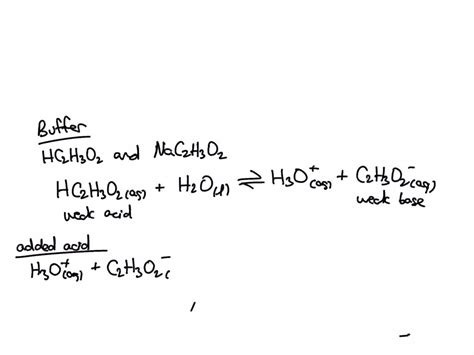 Buffer
HC2H3O2 and NaC2H3O2
HC2H3O2(aq) + H2O(l) ⇌ H3O+(aq) + C2H3O2-(aq)
weak acid weak base
added acid
H3O+(aq) + C2H3O2-(